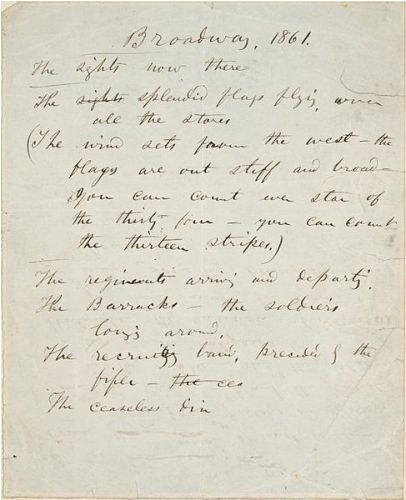 Broadway, 1861.
The sights now there
The sights splendid flags flying over
all the stores
(The wind sets from the west – the
flags are out stiff and broad –
you can count every star of
the thirty four – you can count
the thirteen stripes.)
The regiments arriving and departing,
The Barracks – the soldiers
lounging around,
The recruiting band, preceded by the
fifer – the cea
The ceaseless din